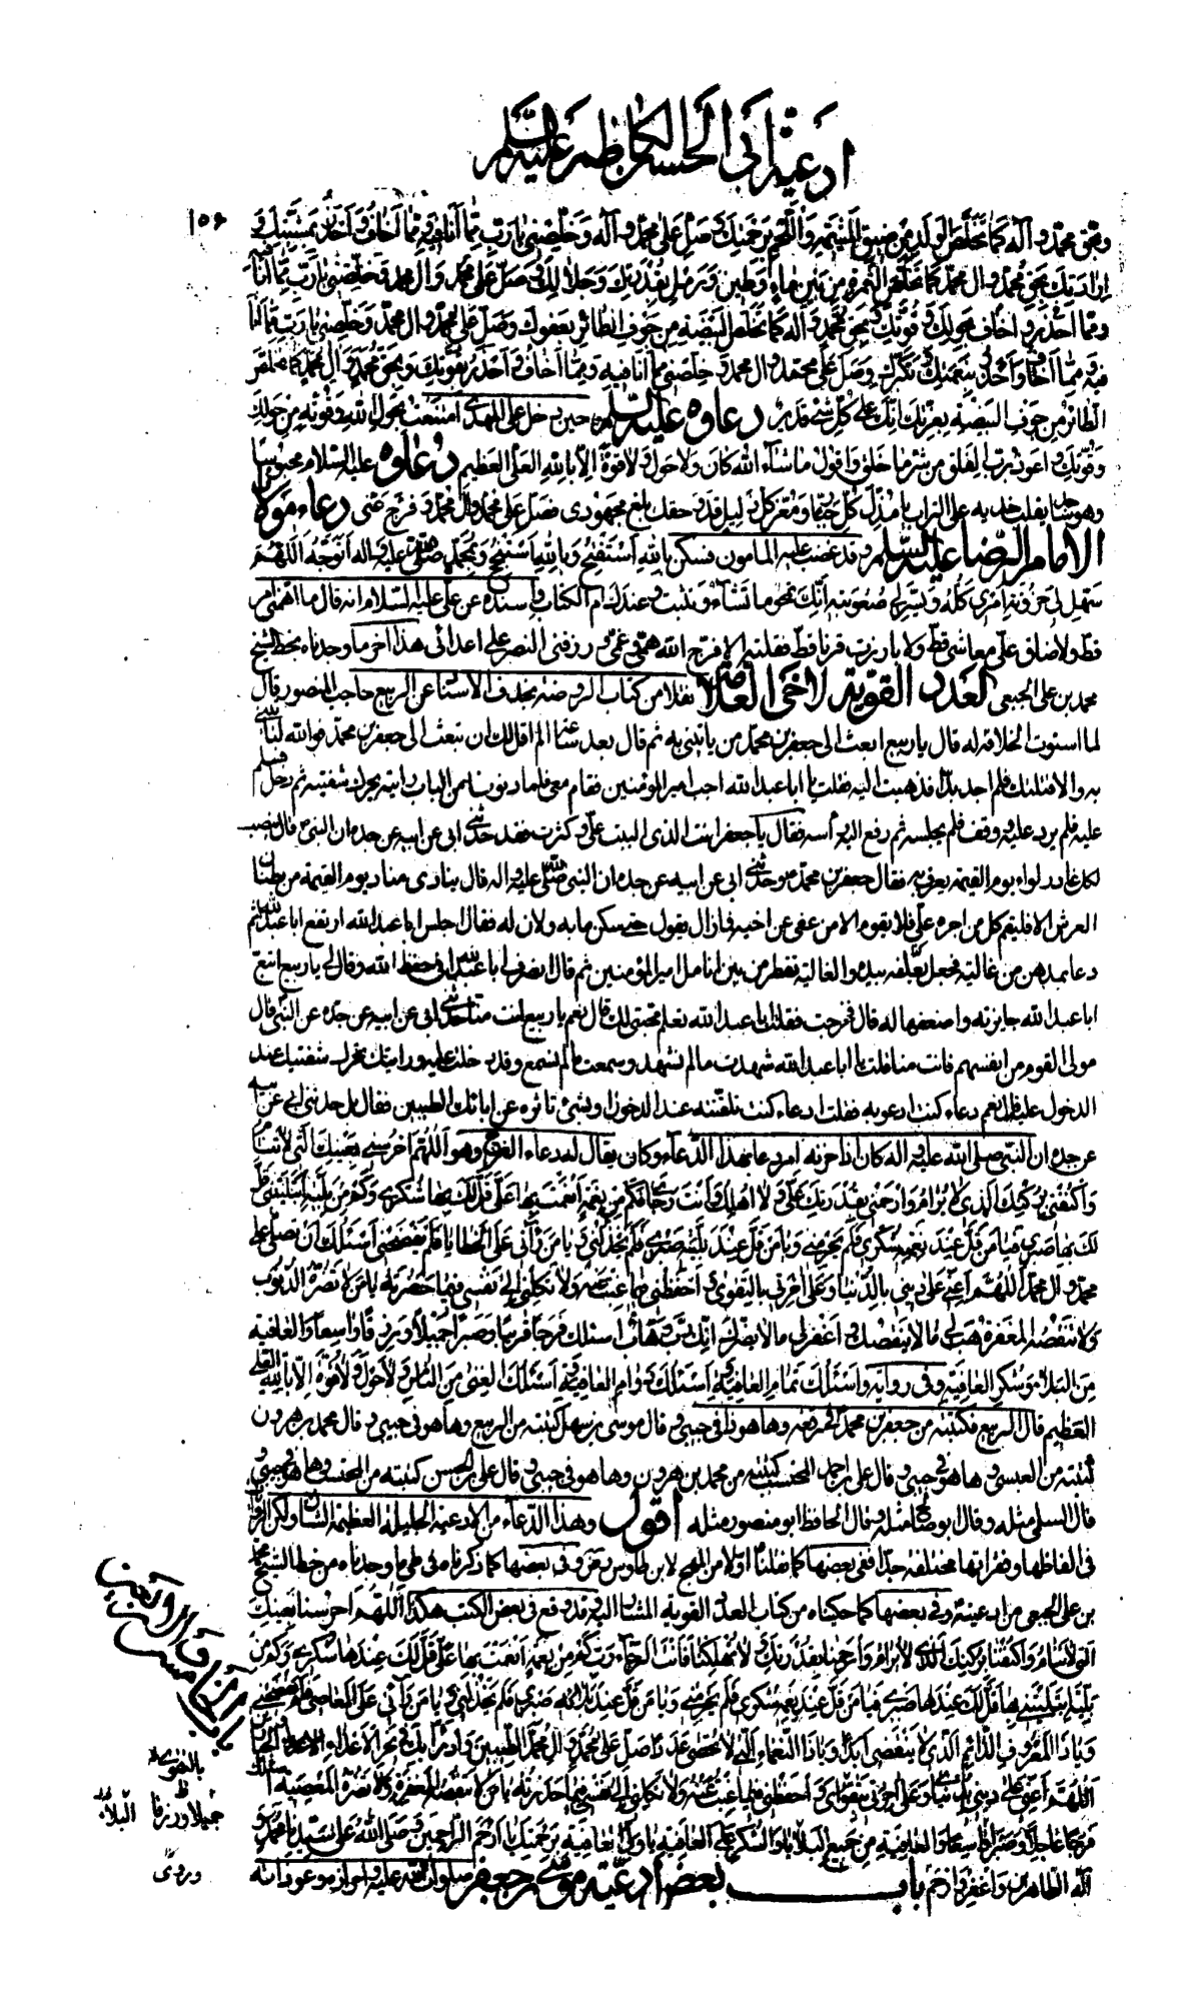 ادعية أبي الحسن الكاظم عليه السلم
۱۵۶
وبحق محمد وآله كما تخلص الولد من ضيق المشيمة واللحم برحمتك وصل على محمد وآله وخلصني يا رب مما أنا فيه ومما أخاف وأحذر بمشيتك في
إرادتك بحق محمد وال محمد كما تخلص الثمرة من بين ماء وطين ورمل بقدرتك وجلالك وصل على محمد وال محمد وخلصني يا رب مما أنا فيه
ومما أحذر وأخاف بحولك وقوتك وبحق محمد واله كما تخلص البيضة من جوف الطائر بعفوك وصل على محمد وال محمد وخلصني يا رب مما أنا
فيه ومما أخاف وأحذر وصل على محمد وال محمد وخلصني مما أنا فيه ومما أخاف وأحذر بقوتك وبحق محمد وال محمد كما تخلص
الطائر من جوف البيضة بعزتك انك على كل شئ قدير دعاؤه عليه السلم حين دخل على المهدي امتنعت بحول الله وقوته من حولك
وقوتك واعوذ برب الفلق من شر ما خلق واقول ما شآء الله كان ولا حول ولا قوة الا بالله العلي العظيم دعاؤه عليه السلام محبوسا
وهو يقلب خديه على التراب يا مذل كل جبار ومعز كل ذليل قد وحقك بلغ مجهودي فصل على محمد وال محمد وفرج عني دعاء مولانا
الامام الرضا عليه السلم وقد غضب عليه المامون فسكن بالله استفتح وبالله استنجح وبمحمد صلى الله عليه واله اتوجه اللهم
سهل لي حزونة امري كله ويسر لي صعوبته انك تمحو ما تشاء وتثبت وعندك ام الكتاب واسنده عن علي عليه السلام انه قال ما اهمني امر
قط ولا ضاق علي معاشي قط ولا بارزت قرنا قط فقلته الا فرج الله همي وغمي ورزقني النصر على اعدائي هذا اخر ما وجدناه بخط الشيخ
محمد بن علي الجبعي العدد القوية لاخي العلامة نقلا من كتاب الروضة بحذف الاسناد عن الربيع حاجب المنصور قال
لما استوت الخلافة له قال يا ربيع ابعث الى جعفر بن محمد من ياتيني به ثم قال بعد ساعة الم اقل لك ان تبعث الى جعفر بن محمد فو الله لتاتيني
به والا قتلتك فلم اجد بدا فذهبت اليه فقلت يا ابا عبد الله اجب امير المؤمنين فقام معي فلما دنونا من الباب رايته يحرك شفتيه ثم دخل فسلم
عليه فلم يرد عليه ووقف فلم يجلسه ثم رفع اليه رأسه فقال يا جعفر انت الذي البت علي وكثرت فقد حدثني ابي عن ابيه عن جده ان النبي ص قال ينصب
لكل غادر لواء يوم القيمة يعرف به فقال جعفر بن محمد حدثني ابي عن ابيه عن جده ان النبي صلى الله عليه واله قال ينادي مناد يوم القيمة من بطنان
العرش الا فليقم كل من اجره علي فلا يقوم الا من عفى عن اخيه فما زال يقول حتى سكن ما به ولان له فقال اجلس ابا عبد الله ارتفع ابا عبد الله ثم
دعا بمدهن من غالية فجعل يغلفه بيده والغالية تقطر من بين انامل امير المؤمنين ثم قال انصرف ابا عبد الله في حفظ الله وقال لي يا ربيع اتبع
ابا عبد الله جايزته واضعفها له قال فخرجت فقلت ابا عبد الله تعلم محبتي لك قال نعم يا ربيع انت منا حدثني ابي عن ابيه عن جده عن النبي قال
مولى القوم من انفسهم فانت منا قلت يا ابا عبد الله شهدت ما لم تشهد وسمعت ما لم تسمع وقد دخلت عليه ورايتك تحرك شفتيك عند
الدخول عليه قال نعم دعاء كنت ادعو به فقلت ادعاء كنت تلقنته عند الدخول او شئ تاثره عن ابائك الطيبين فقال بل حدثني ابي عن ابيه
عن جده ان النبي صلى الله عليه واله كان اذا حزنه امر دعا بهذا الدعآء وكان يقال له دعاء الفرج وهو اللهم احرسني بعينك التي لا تنام
واكنفني بركنك الذي لا يرام وارحمني بقدرتك علي ولا اهلك وانت رجائي فكم من نعمة انعمت بها علي قل لك بها شكري وكم من بلية ابتليتني قل
لك بها صبري فيا من قل عند نعمه شكري فلم يحرمني ويا من قل عند بليته صبري فلم يخذلني ويا من رآني على الخطايا فلم يفضحني اسئلك ان تصلي على
محمد وال محمد اللهم اعني على ديني بالدنيا وعلى اخرتي بالتقوى واحفظني فيما غبت عنه ولا تكلني الى نفسي فيما حضرته يا من لا تضره الذنوب
ولا تنقصه المغفرة هب لي ما لا ينقصك واغفر لي ما لا يضرك انك وهاب اسئلك فرجا قريبا وصبرا جميلا ورزقا واسعا والعافية
من البلاء وشكر العافية وفي رواية واسئلك تمام العافية واسئلك دوام العافية واسئلك الغنى عن الناس ولا حول ولا قوة الا بالله العلي
العظيم قال الربيع فكتبته من جعفر بن محمد في رقعة وها هو ذا في جيبي وقال موسى بن سهل كتبته من الربيع وها هو في جيبي وقال محمد بن هرون
كتبته من العبسي وها هو في جيبي وقال علي بن احمد المحتسب كتبته من محمد بن هرون وها هو في جيبي وقال علي بن الحسن كتبته من المحتسب وها هو في جيبي و
قال السلمي مثله وقال ابو صالح مثله وقال الحافظ ابو منصور مثله اقول وهذا الدعآء من الادعية الجليلة العظيمة الشان ولكن
في الفاظها وفقراتها مختلفة جدا ففي بعضها كما نقلناه اولا من المهج لابن طاوس وفي بعضها كما ذكرناه في طي ما وجدناه من خط الشيخ محمد
بن علي الجبعي من ادعيته وفي بعضها كما حكيناه من كتاب العدد القوية المشار اليه وقد وقع في بعض الكتب هكذا اللهم احرسنا بعينك
التي لا تنام واكنفنا بركنك الذي لا يرام وارحمنا بقدرتك لا تهلكنا فانت الرجاء رب كم من نعمة انعمت بها علي قل لك عندها شكري وكم من
بلية ابتليتني بها قل لك عندها صبري فيا من قل عند نعمته شكري فلم يحرمني ويا من قل عند بلائه صبري فلم يخذلني ويا من رآني على المعاصي فلم يفضحني
ويا ذا المعروف الدائم الذي لا ينقضي ابدا ويا ذا النعماء التي لا تحصى عددا صل على محمد وال محمد الطيبين وادرأ بك في نحور الاعداء
اللهم اعني على ديني بدنياي وعلى اخرتي بتقواي واحفظني فيما غبت عنه ولا تكلني الى نفسي فيما حذرته يا من لا تنقصه المغفرة ولا تضره المعصية اسئلك
فرجا عاجلا وصبرا واسعا والعافية من جميع البلايا والشكر على العافية يا ولي العافية برحمتك يا ارحم الراحمين وصلى الله على سيدنا محمد و
آله الطاهرين واغفر وارحم باب بعض ادعية موسى بن جعفر صلوات الله عليه واحرازه وعوذاته